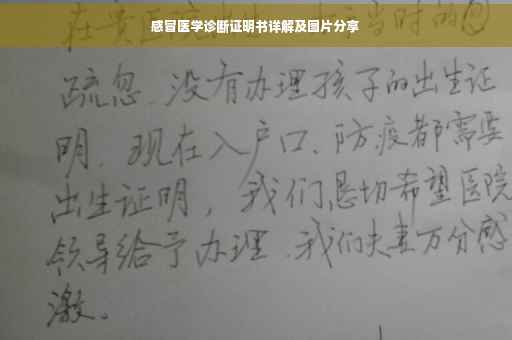 感冒医学诊断证明书详解及图片分享
当时的
疏忽、没有办理孩子的出生证
明。现在入户口、防疫都需要
出生证明，我们恳切希望医院
领导给予办理、我们夫妻万分感
激。